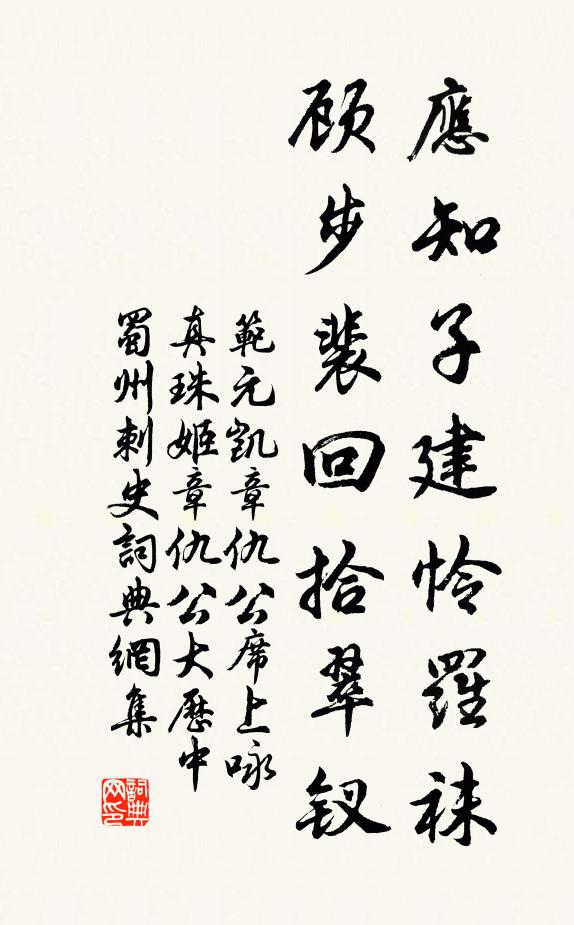 應知子建怜羅袜
顾步裴回拾翠钗
範元凯章仇公席上咏
真珠姬章仇公大歷中
蜀州刺史詞典網集
詞典网印